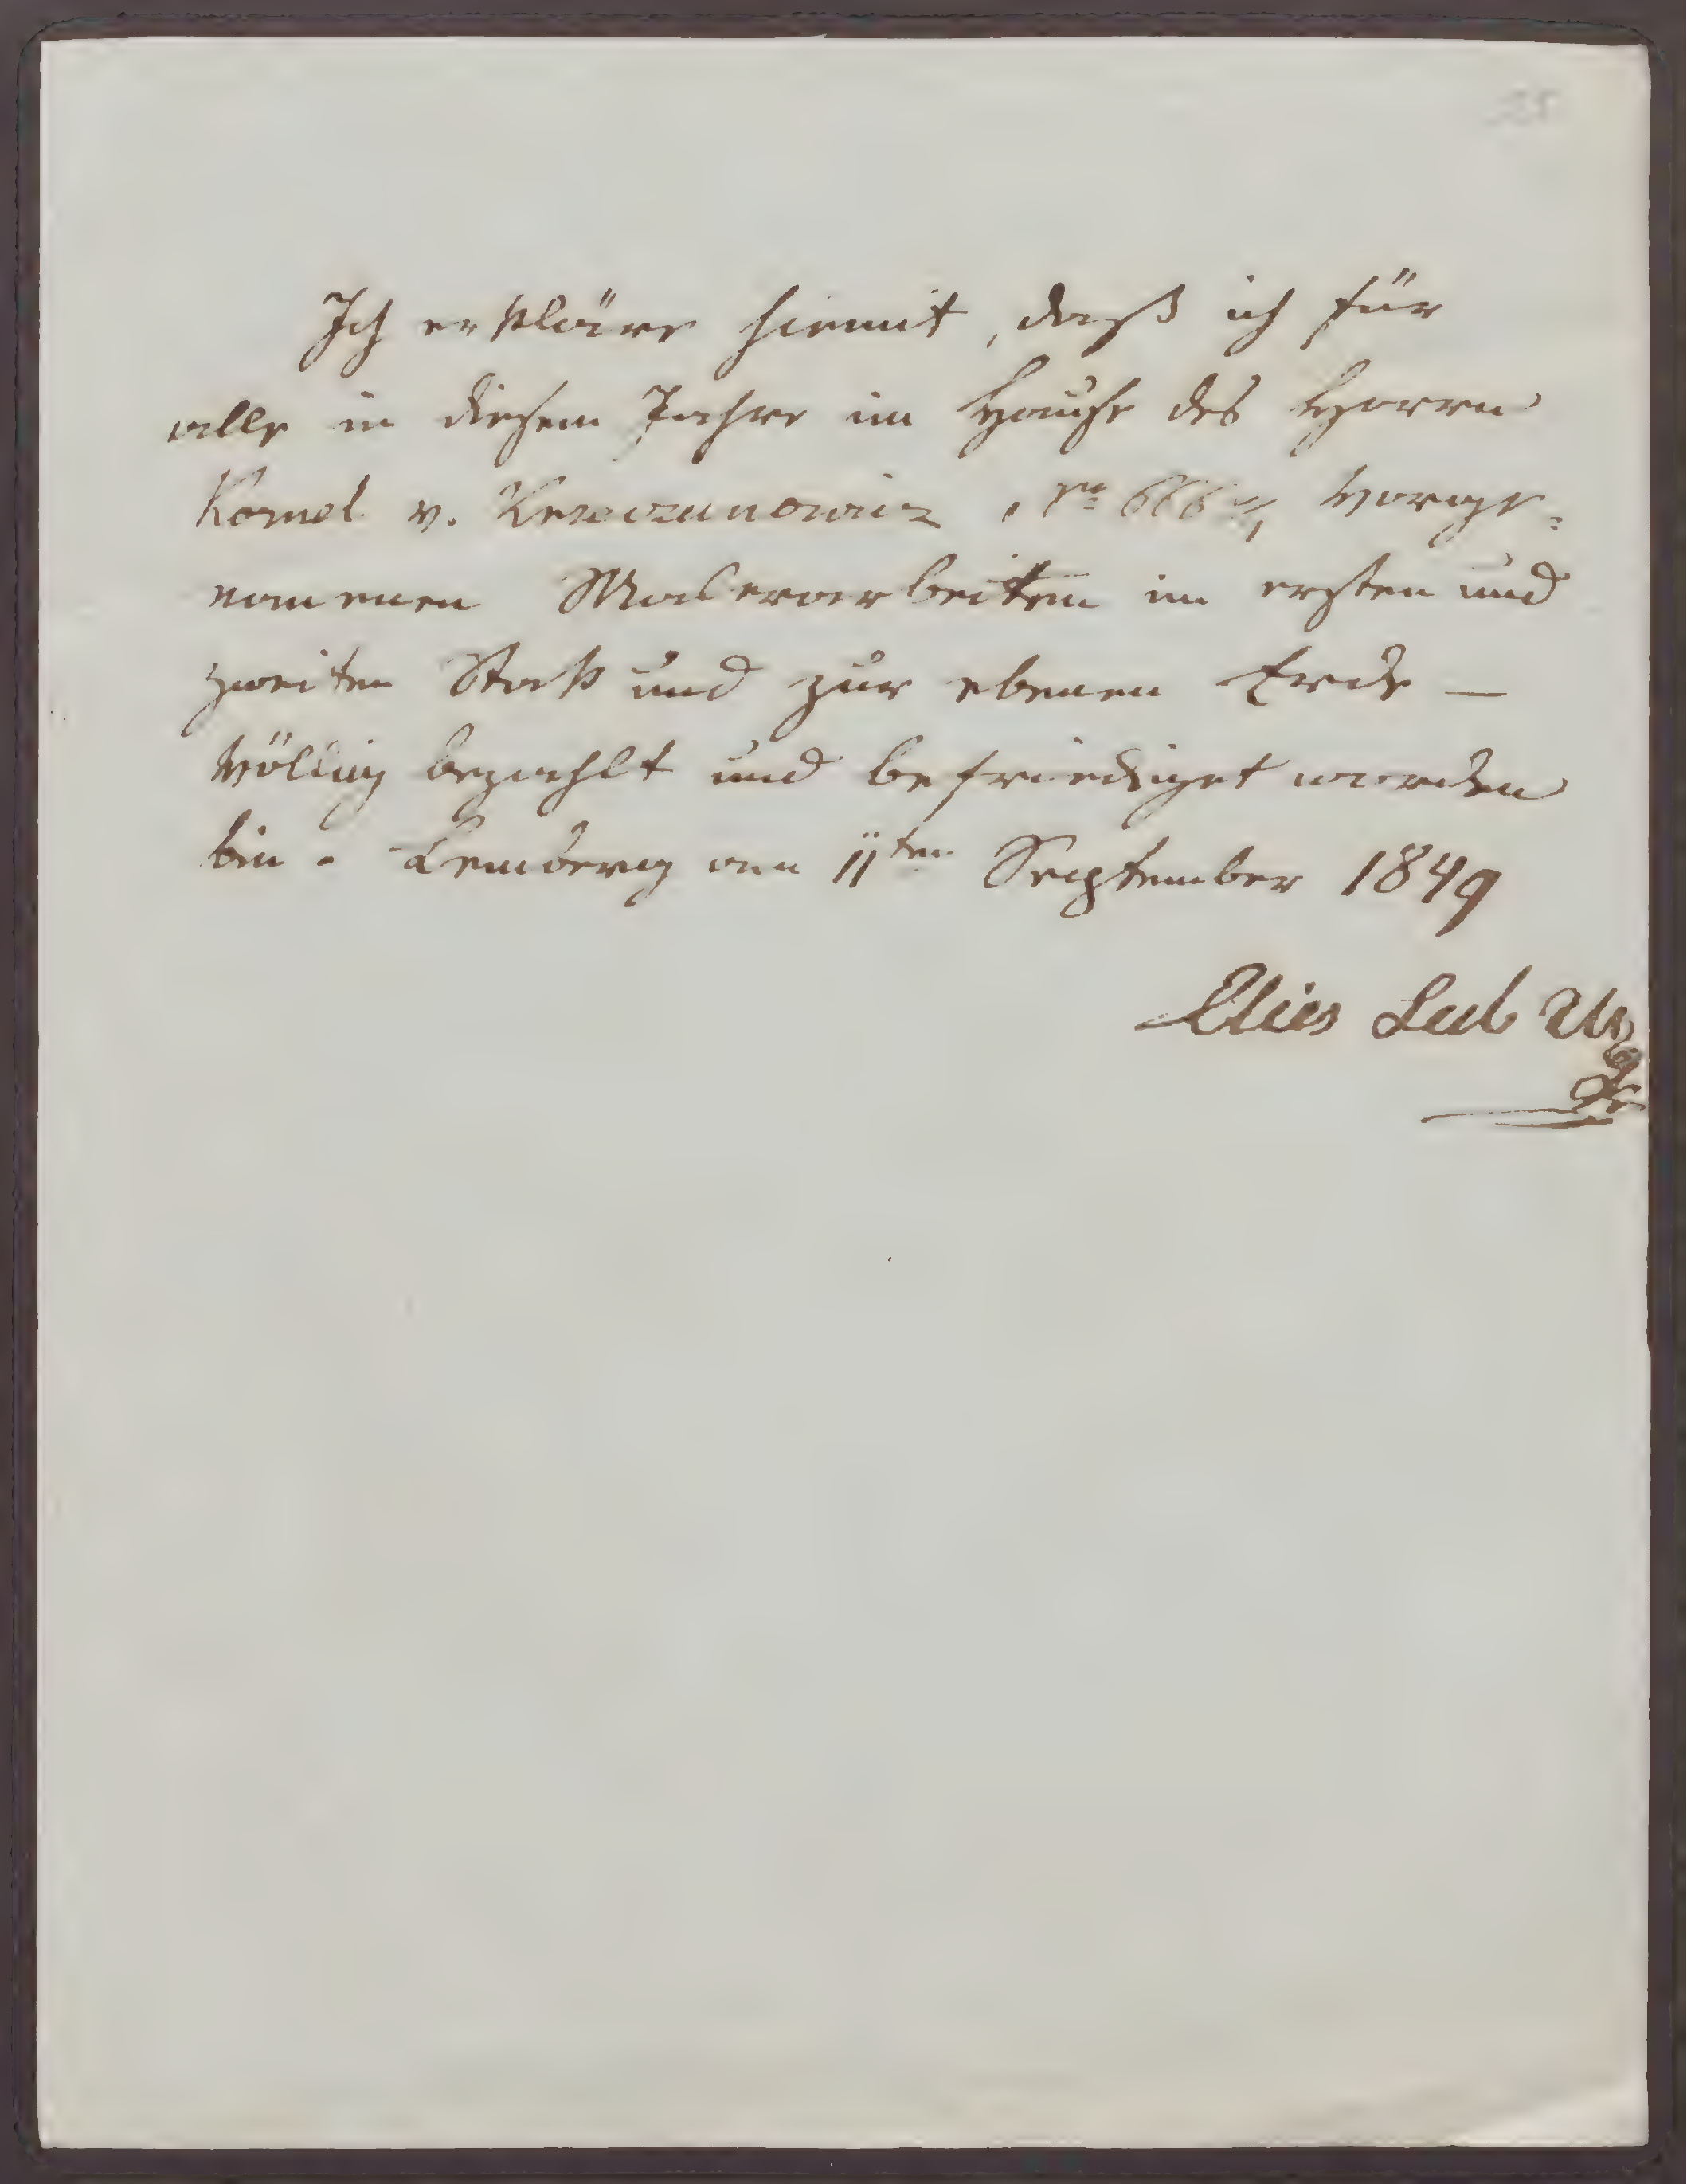 Ich erkläre hiemit, daß ich für
alle in diesem Jahre im Hause des Herrn
Kornel v. Krzeczunowicz, No 666 4/4 vorge=
nommenen Malerarbeiten im ersten und
zweiten Stock und zur ebenen Erde —
völlig bezahlt und befriediget worden
bin. Lemberg am 11ten September 1849
Elias Leib